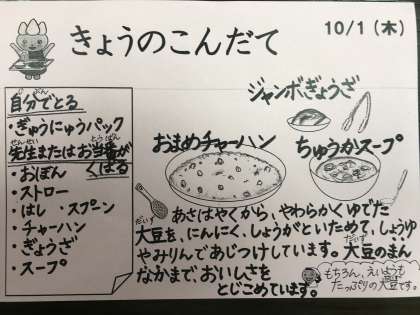 きょうのこんだて
10/1（木）
自分でとる
・ぎゅうにゅうパック
先生またはお当番が
くばる
・おぼん
・ストロー
・はし ・スプーン
・チャーハン
・ぎょうざ
・スープ
ジャンボぎょうざ
おまめチャーハン
ちゅうかスープ
あさはやくから、やわらかくゆでた
大豆を、にんにく、しょうがといためて、しょうゆ
やみりんであじつけしています。大豆のまん
なかまで、おいしさを
とじこめています。
もちろん、えいようも
たっぷりの大豆です。